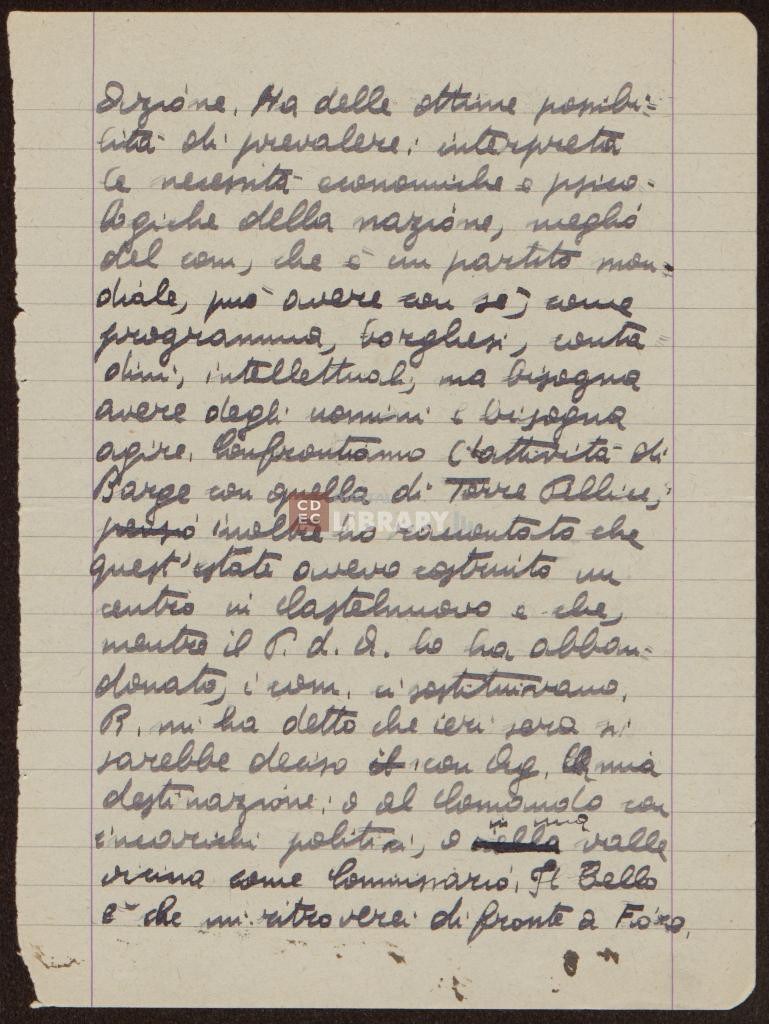 dizione. Ha delle ottime possibi-
lità di prevalere: interpreta
le necessità economiche e psico-
logiche della nazione, meglio
del com, che è un partito mon-
diale, può avere con sé, come
programma, borghesi, conta
dini, intellettuali, ma bisogna
avere degli uomini e bisogna
agire. Confrontiamo l'attività di
Barge con quella di Torre Pellice,
inoltre ho raccontato che
quest'estate avevo costruito un
centro in Castelnuovo e che,
mentre il P. d. A. lo ha abban-
donato, i com. ci sostituivano.
R. mi ha detto che ieri sera si
sarebbe deciso il con Ag. la mia
destinazione: o al Comando con
incarichi politici, o nella in una valle
vicina come Commissario. Il Bello
è che mi ritroverei di fronte a
CDEC
LIBRARY